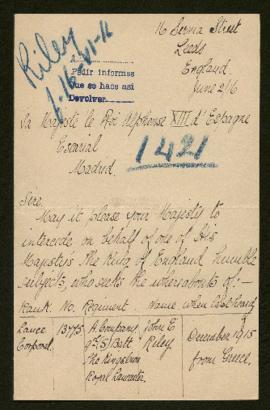 Riley
1-16-VI-16
Pedir informes
que se haos así
Devolver.
16 Servia Street
Leeds
England
June 2/16
Sa Majesté le Roi Alphonse XIII d'Espagne
Escurial
Madrid.
1421
Sire
May it please your Majesty to
intercede on behalf of one of His
Majestys The King of England humble
subjects, who seeks the whereabouts of:-
Rank. No. Regiment Name when last heard
Lance 13775 A Company John E December 1915
Corporal. 9th S/Batt Riley from Greece.
The Kings Own
Royal Lancaster.